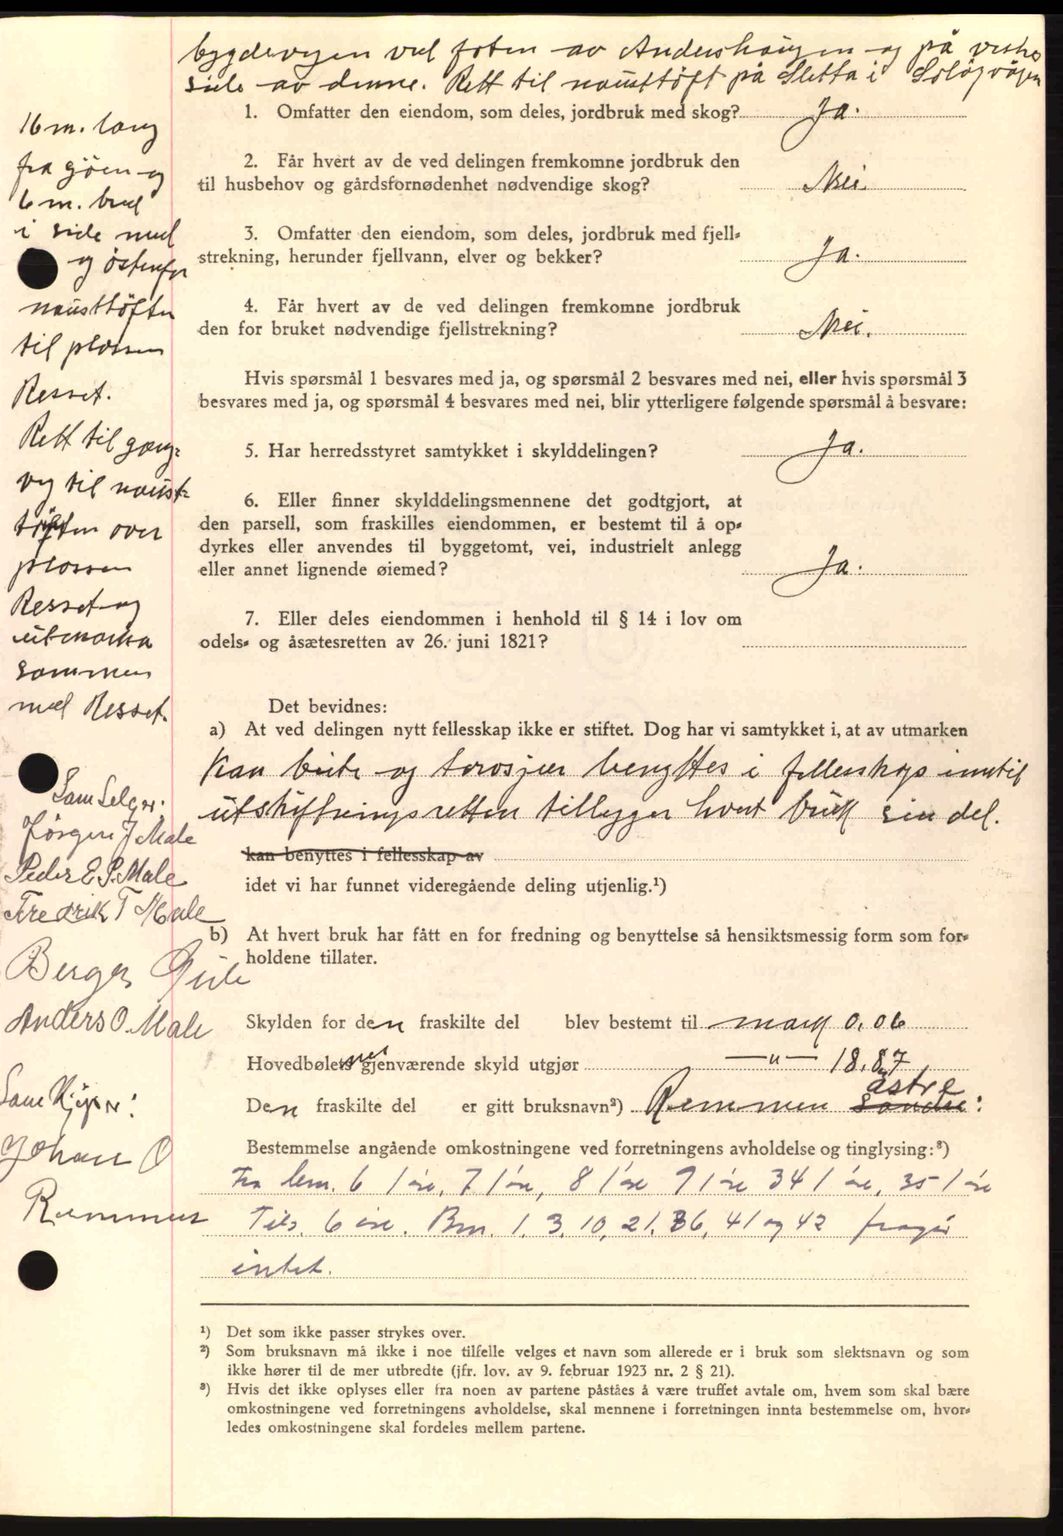 bygdevegen ved foten av Andershaugen og på vestre
side av denne. Rett til nausttøft på Sletta i Soløyvågen
16 m. lang
fra sjøen og
6 m. bred
i side med
og østenfor
nausttøften
til plassen
Resset.
Rett til gang-
veg til naust-
tøften over
plassen
Resset og
utmarka
sammen
med Resset.
Som Selger:
Jørgen J Male
Peder E. P. Male
Fredrik T Male
Berger
Anders O. Male
Som Kjøper:
Johan O
Remmen
1. Omfatter den eiendom, som deles, jordbruk med skog? Ja.
2. Får hvert av de ved delingen fremkomne jordbruk den
til husbehov og gårdsfornødenhet nødvendige skog? Nei.
3. Omfatter den eiendom, som deles, jordbruk med fjell-
strekning, herunder fjellvann, elver og bekker? Ja.
4. Får hvert av de ved delingen fremkomne jordbruk
den for bruket nødvendige fjellstrekning? Nei.
Hvis spørsmål 1 besvares med ja, og spørsmål 2 besvares med nei, eller hvis spørsmål 3
besvares med ja, og spørsmål 4 besvares med nei, blir ytterligere følgende spørsmål å besvare:
5. Har herredsstyret samtykket i skylddelingen? Ja.
6. Eller finner skylddelingsmennene det godtgjort, at
den parsell, som fraskilles eiendommen, er bestemt til å op-
dyrkes eller anvendes til byggetomt, vei, industrielt anlegg
eller annet lignende øiemed? Ja.
7. Eller deles eiendommen i henhold til § 14 i lov om
odels- og åsætesretten av 26. juni 1821?
Det bevidnes:
a) At ved delingen nytt fellesskap ikke er stiftet. Dog har vi samtykket i, at av utmarken
kan beite og torvskjær benyttes i fellesskap inntil
utskiftningsretten tillegger hvert bruk sin del.
kan benyttes i fellesskap av
idet vi har funnet videregående deling utjenlig.¹)
b) At hvert bruk har fått en for fredning og benyttelse så hensiktsmessig form som for-
holdene tillater.
Skylden for den fraskilte del blev bestemt til mark 0.06
Hovedbølets gjenværende skyld utgjør —"— 18.87
østre
Den fraskilte del er gitt bruksnavn²) Remmen søndre:
Bestemmelse angående omkostningene ved forretningens avholdelse og tinglysing:³)
Fra bnr. 6 1 øre, 7 1 øre, 8 1 øre 9 1 øre 34 1 øre, 35 1 øre
Tils. 6 øre. Bnr. 1, 3, 10, 21, 36, 41 og 42 fragår
intet.
¹) Det som ikke passer strykes over.
²) Som bruksnavn må ikke i noe tilfelle velges et navn som allerede er i bruk som slektsnavn og som
ikke hører til de mer utbredte (jfr. lov. av 9. februar 1923 nr. 2 § 21).
³) Hvis det ikke oplyses eller fra noen av partene påståes å være truffet avtale om, hvem som skal bære
omkostningene ved forretningens avholdelse, skal mennene i forretningen innta bestemmelse om, hvor-
ledes omkostningene skal fordeles mellem partene.